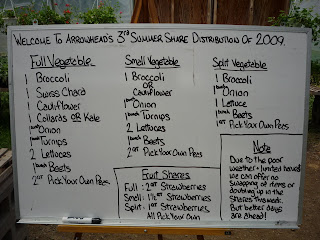 Welcome To Arrowhead's 3rd Summer Share Distribution Of 2009.
Full Vegetable
1 Broccoli
1 Swiss Chard
1 Cauliflower
1 Collards OR Kale
1 bunch Onion
1 bunch Turnips
2 Lettuces
1 bunch Beets
2 QT Pick Your Own Peas
Small Vegetable
1 Broccoli
OR
Cauliflower
1 bunch Onion
1 bunch Turnips
2 Lettuces
1 bunch Beets
2 QT Pick Your Own Peas
Split Vegetable
1 Broccoli
1 bunch Onion
1 Lettuce
1 bunch Turnips
1 bunch Beets
1 QT Pick Your Own Peas
Fruit Shares
Full: 2 QT Strawberries
Small: 1½ QT Strawberries
Split: 1 QT Strawberries
All Pick Your Own
Note
Due to the poor
weather + limited harvest
we can offer no
swapping of items or
doubling up in the
shares this week.
But better days
are ahead!